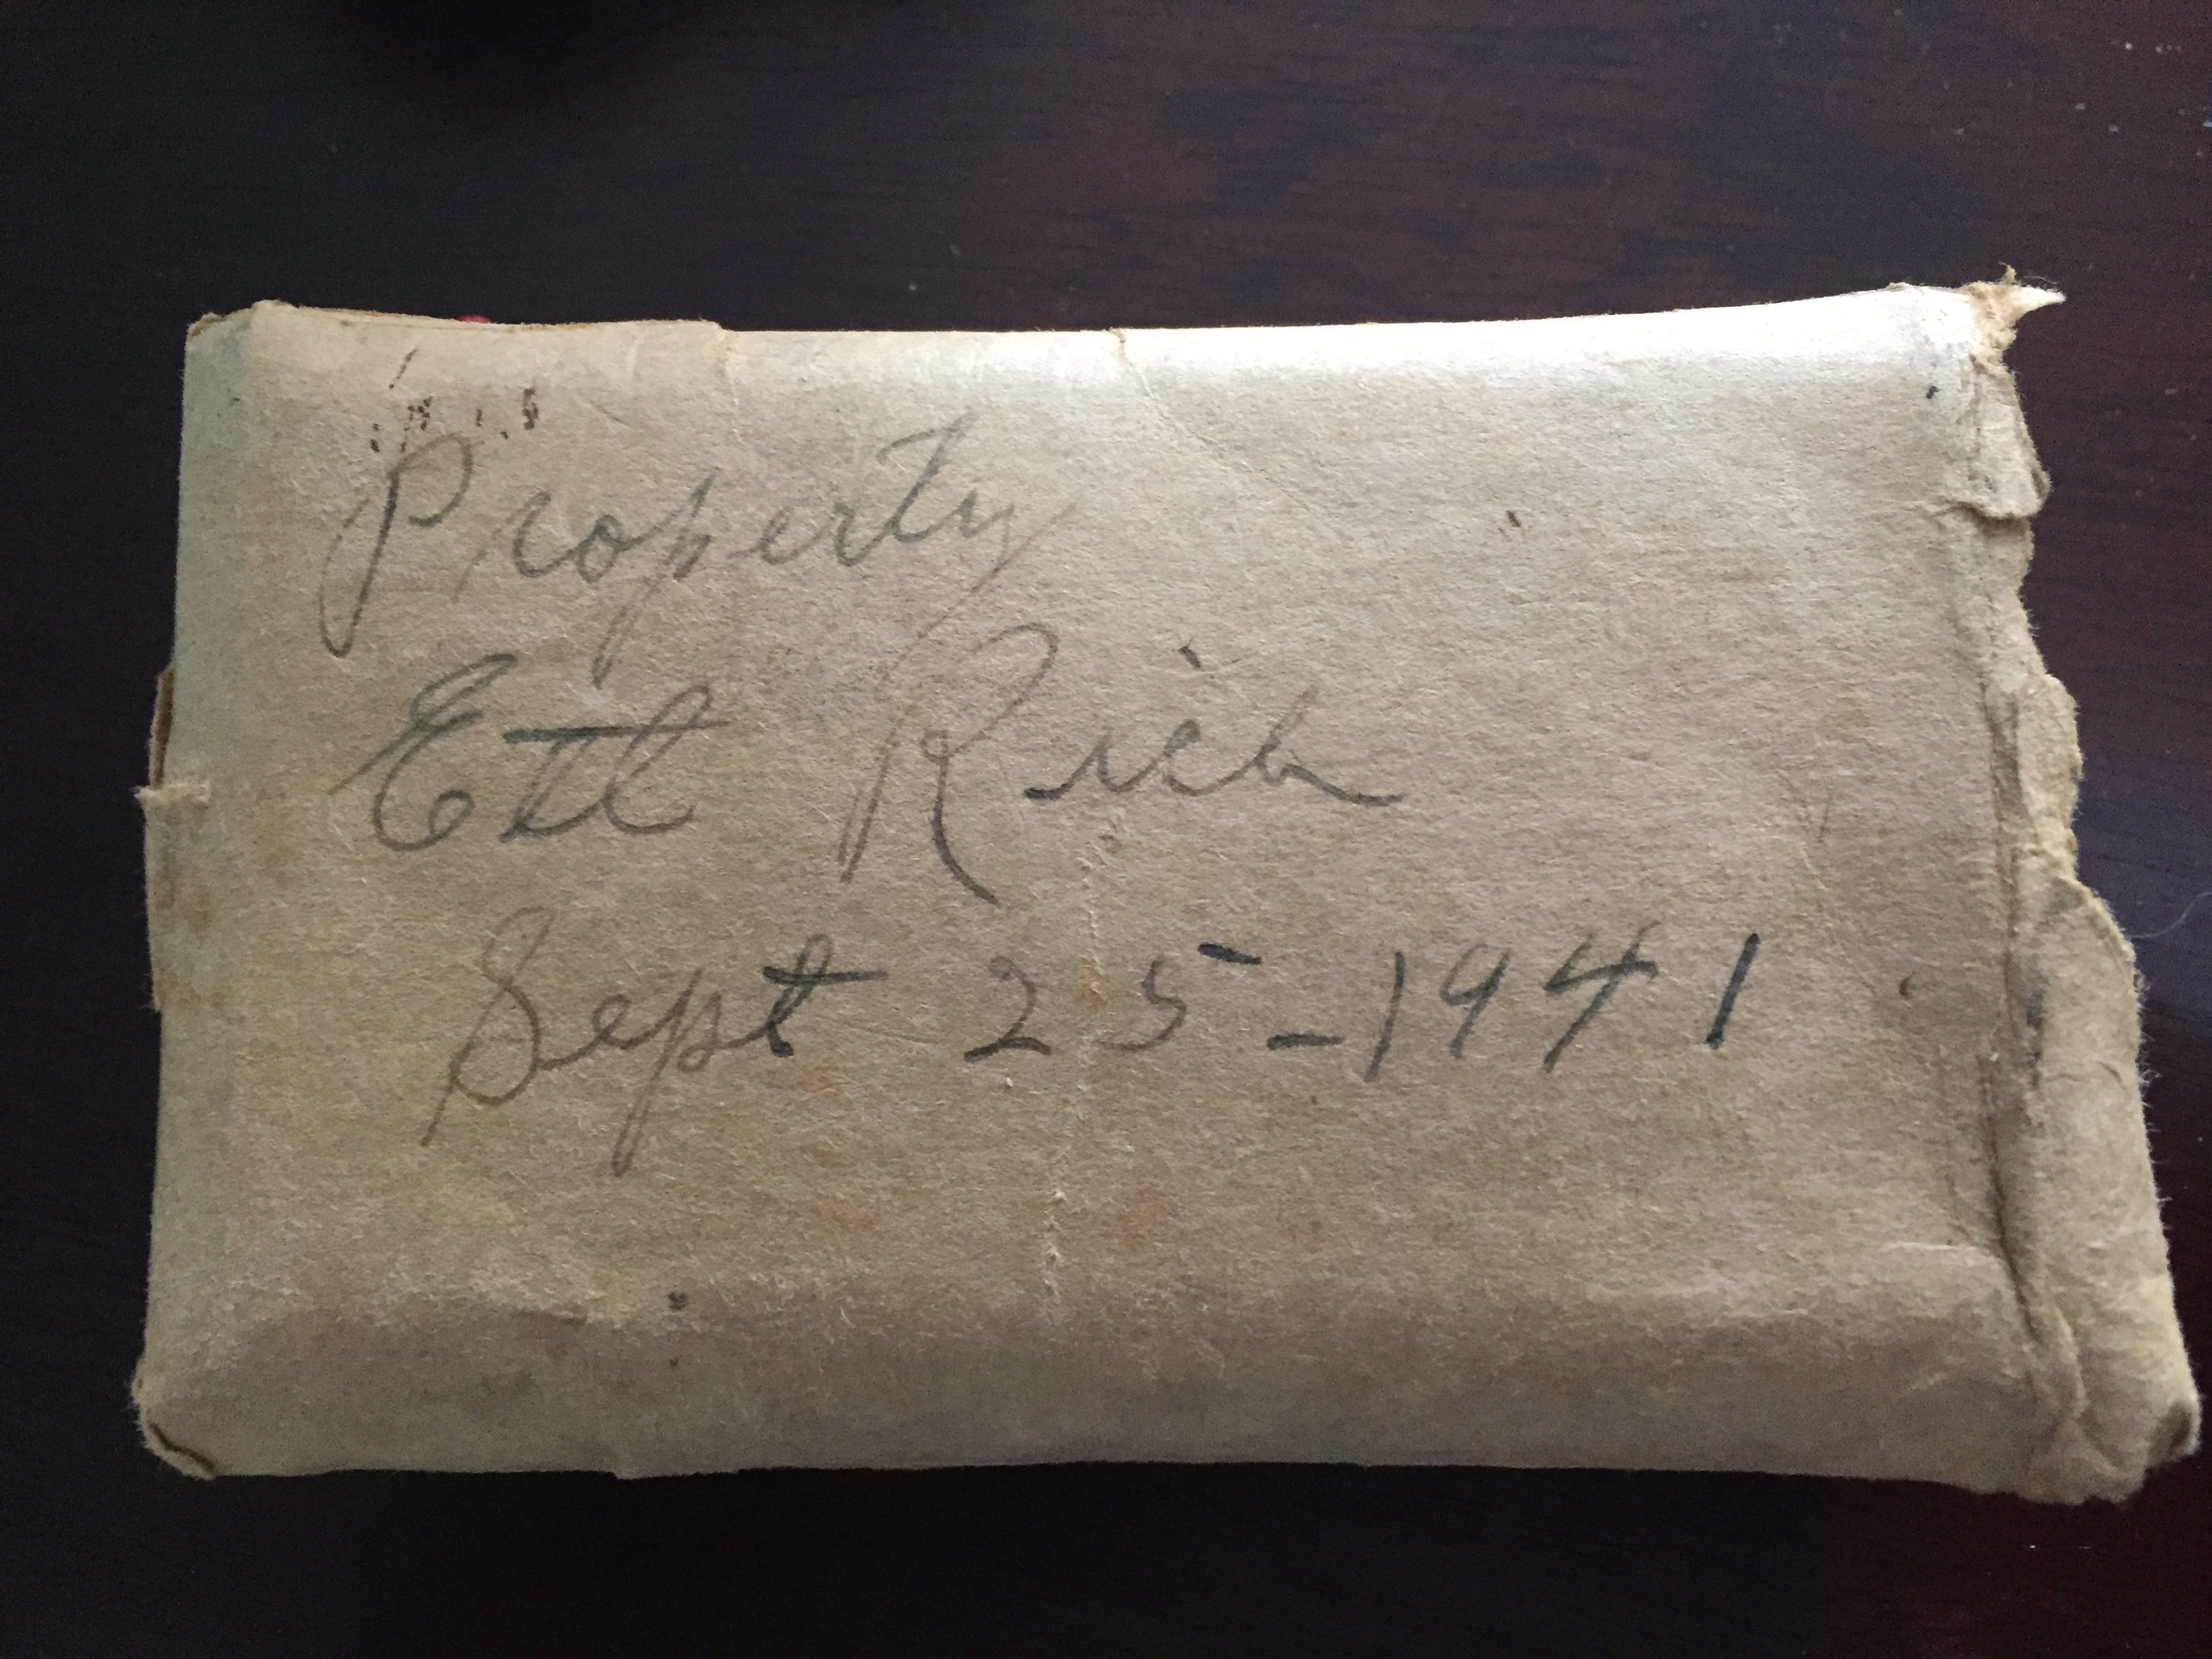 Property
Ett Rich
Sept 25-1941